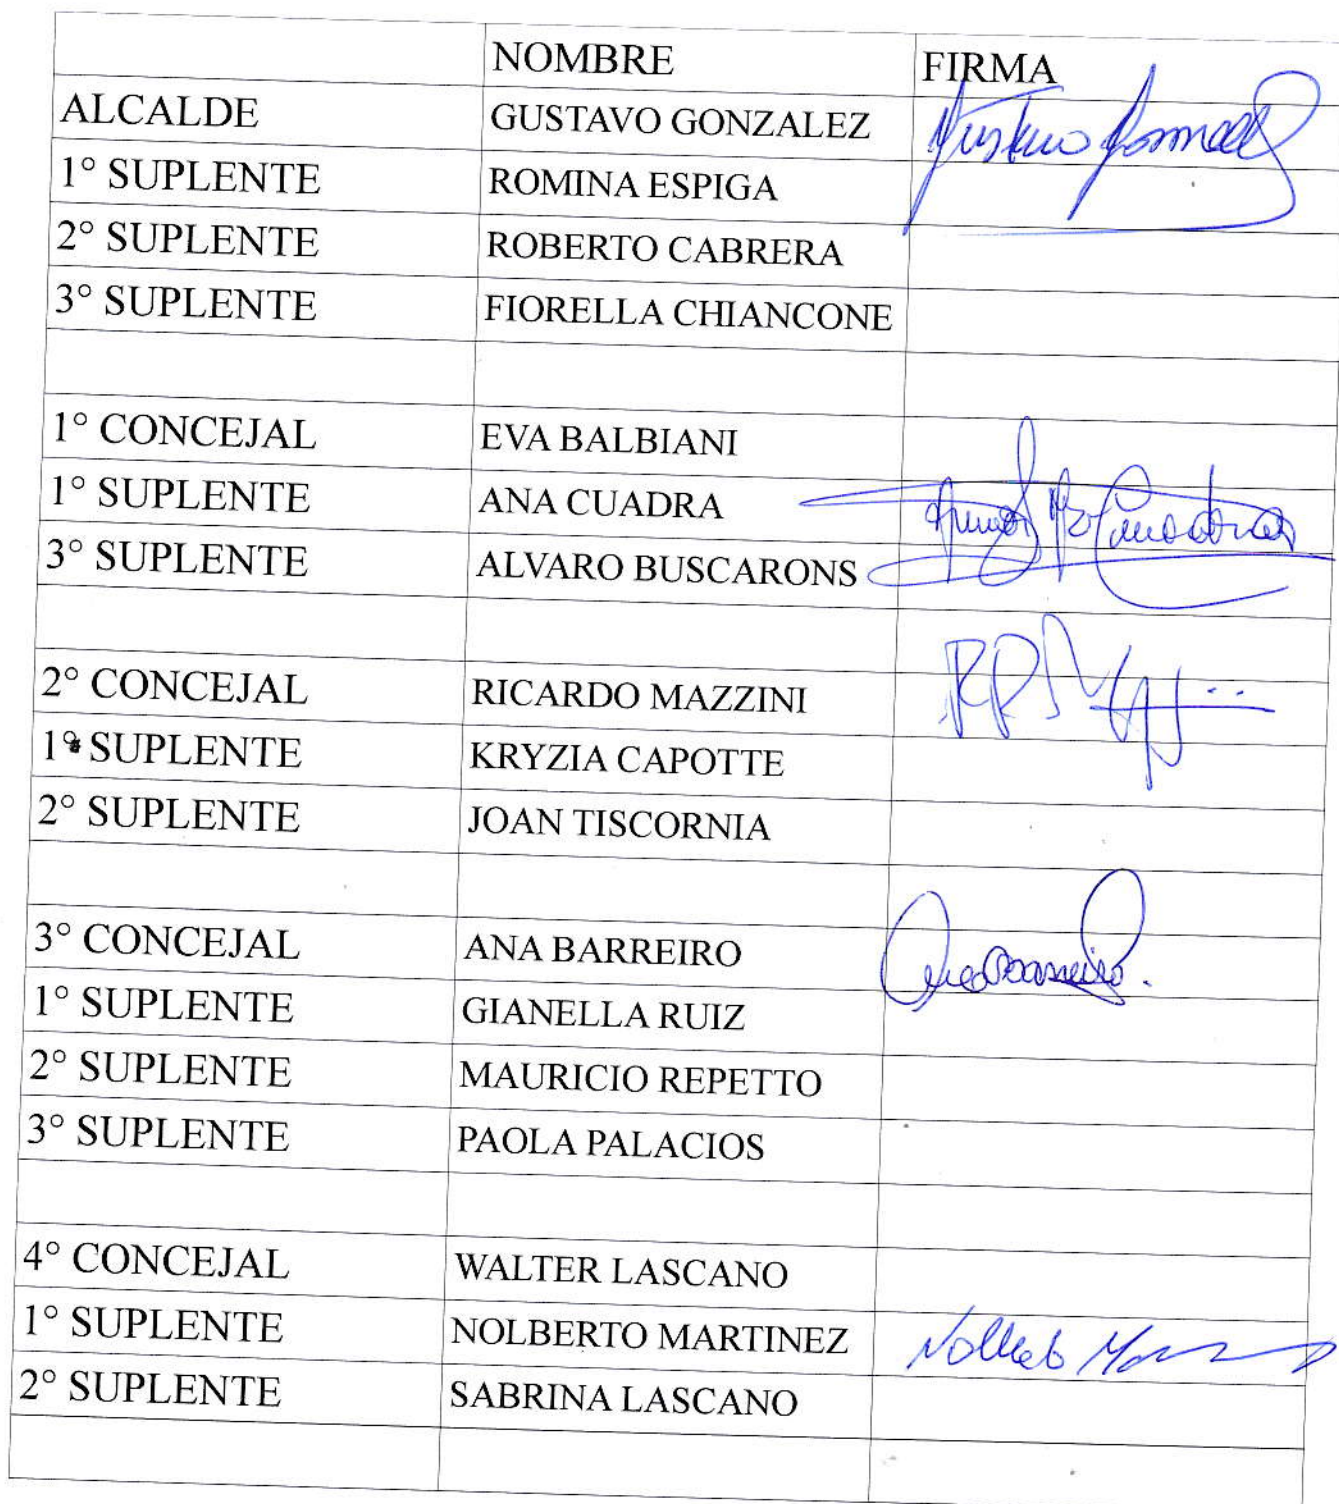 NOMBRE FIRMA
ALCALDE GUSTAVO GONZALEZ Gustavo Gonzalez
1° SUPLENTE ROMINA ESPIGA
2° SUPLENTE ROBERTO CABRERA
3° SUPLENTE FIORELLA CHIANCONE
1° CONCEJAL EVA BALBIANI
1° SUPLENTE ANA CUADRA
3° SUPLENTE ALVARO BUSCARONS
2° CONCEJAL RICARDO MAZZINI
1° SUPLENTE KRYZIA CAPOTTE
2° SUPLENTE JOAN TISCORNIA
3° CONCEJAL ANA BARREIRO Ana Barreiro.
1° SUPLENTE GIANELLA RUIZ
2° SUPLENTE MAURICIO REPETTO
3° SUPLENTE PAOLA PALACIOS
4° CONCEJAL WALTER LASCANO
1° SUPLENTE NOLBERTO MARTINEZ
2° SUPLENTE SABRINA LASCANO